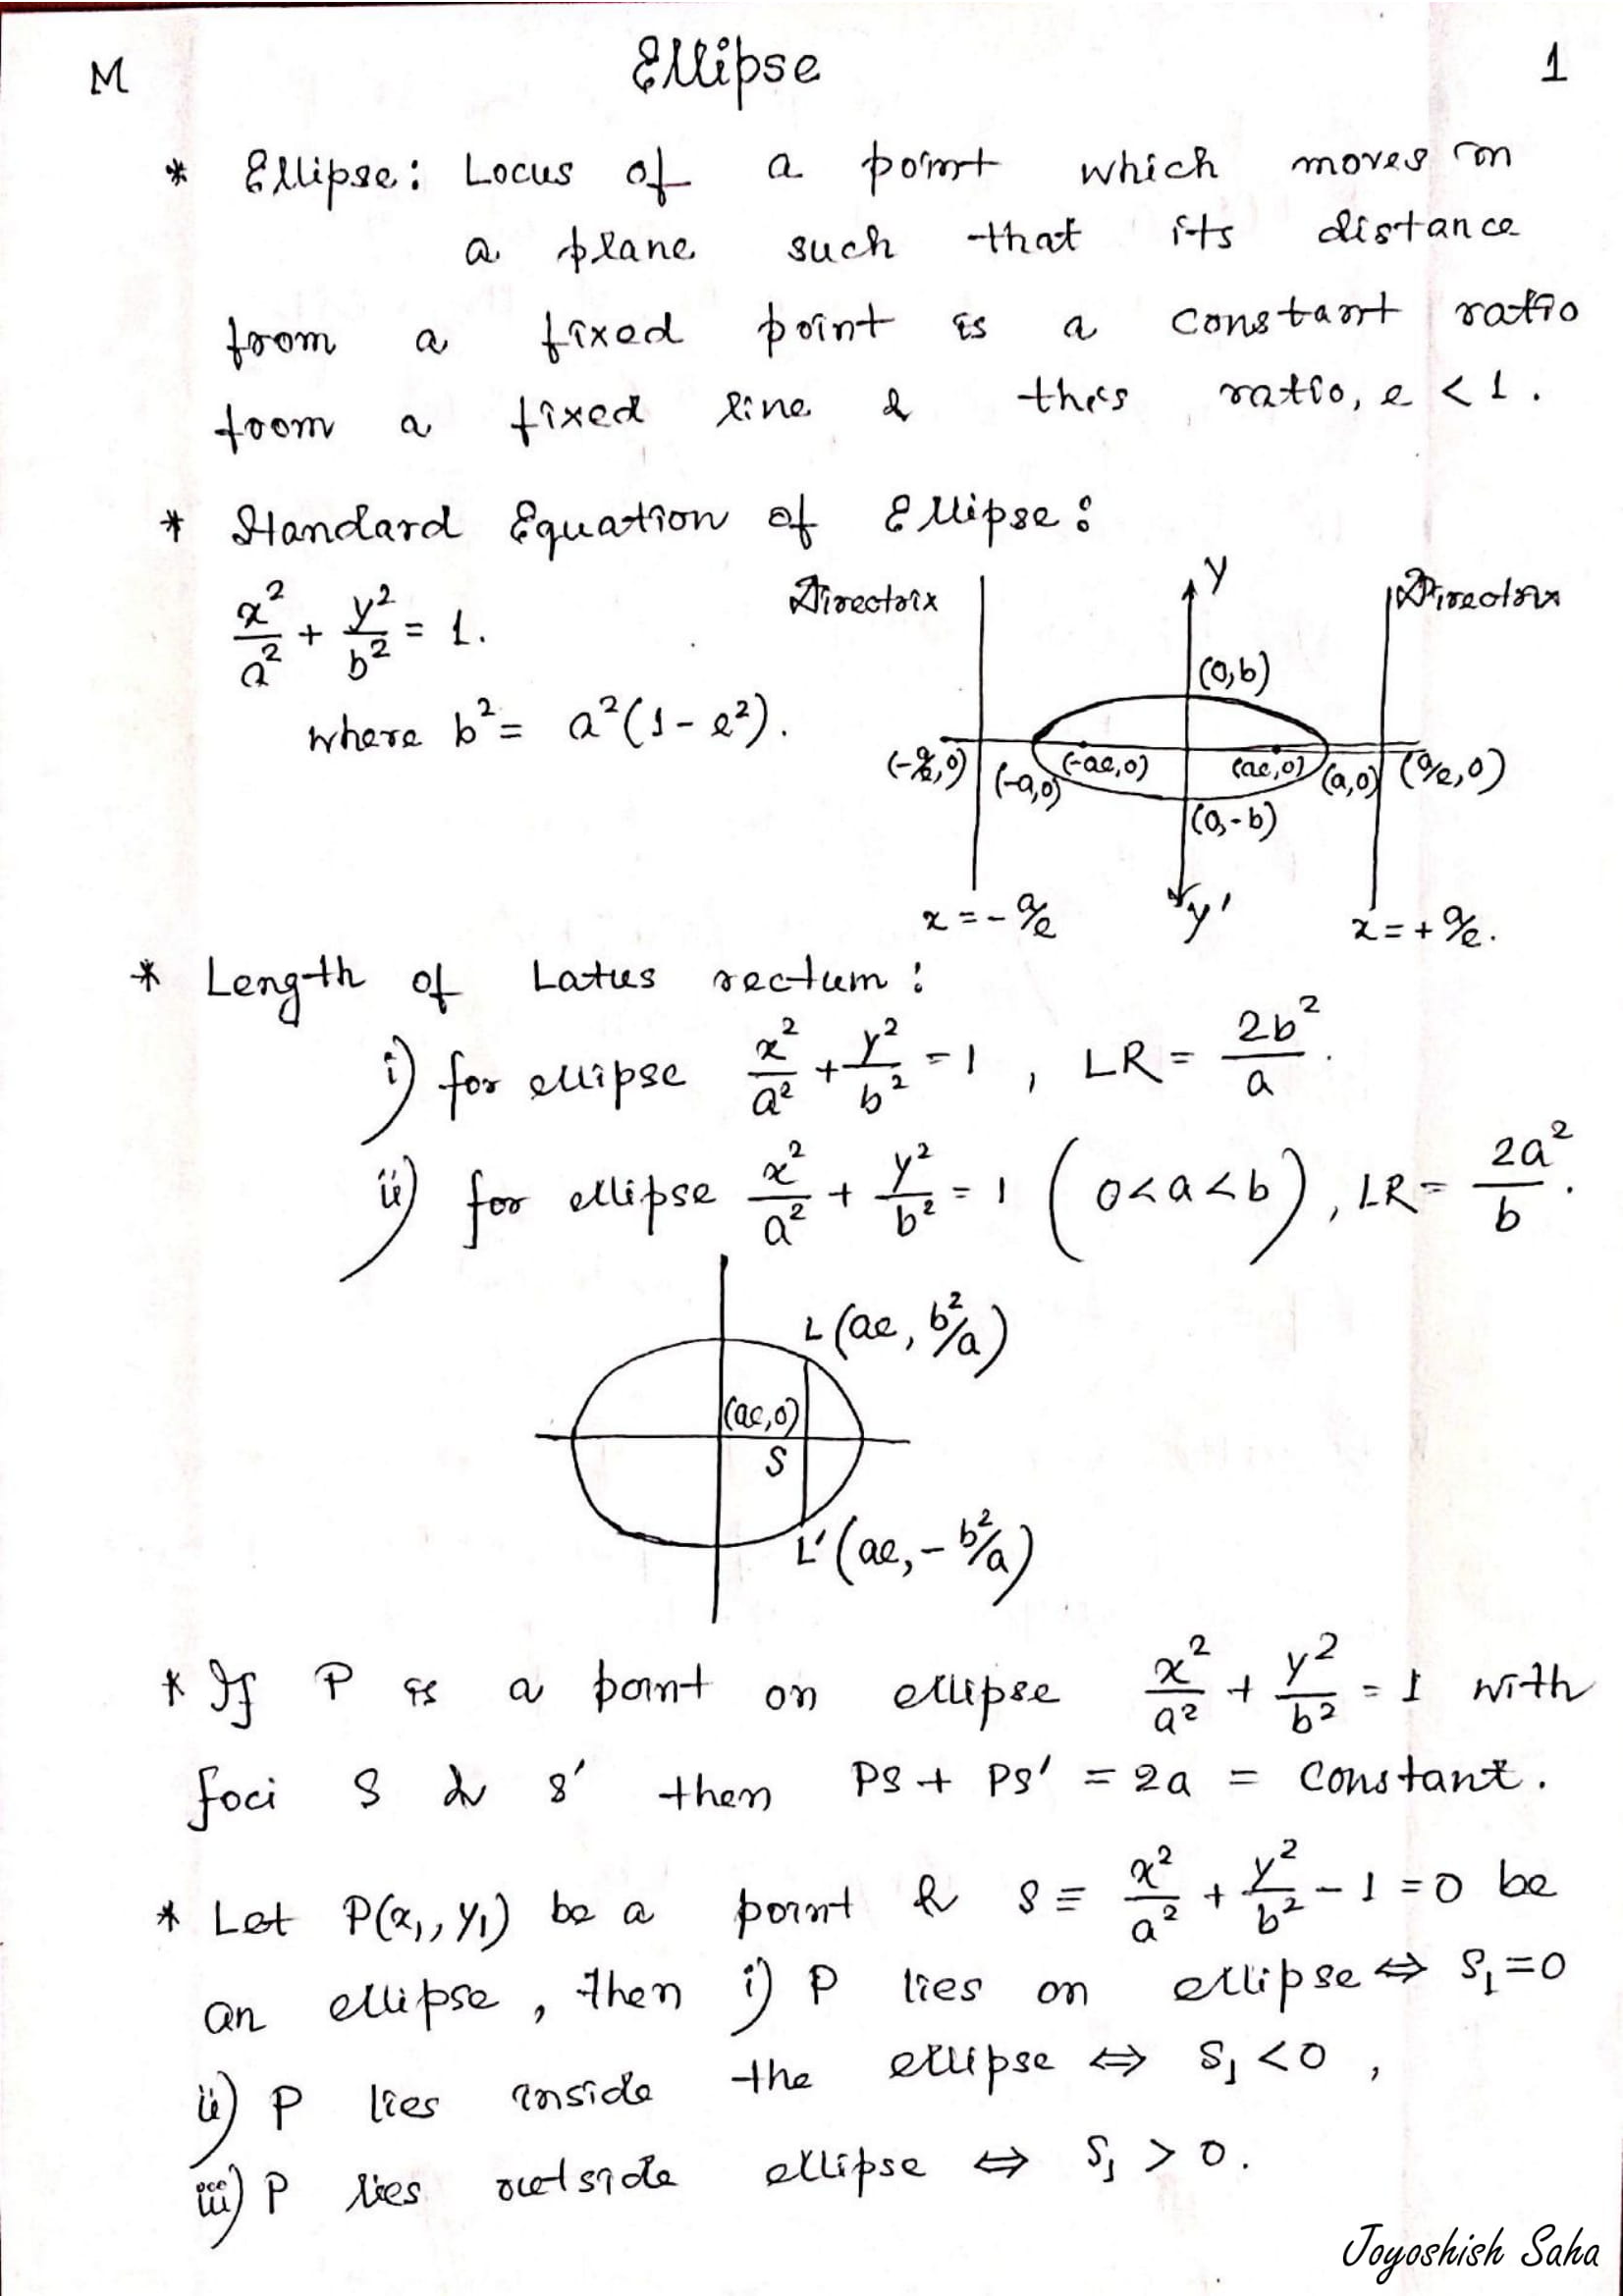 M Ellipse 1
* Ellipse: Locus of a point which moves in
a plane such that its distance
from a fixed point is a constant ratio
from a fixed line & this ratio, e < 1.
* Standard Equation of Ellipse:
x²/a² + y²/b² = 1.
where b² = a²(1 - e²).
Directrix Y Directrix
(0,b)
(-a/e,0) (-a,0) (-ae,0) (ae,0) (a,0) (a/e,0)
(0,-b)
x = - a/e y' x = + a/e.
* Length of Latus rectum:
i) for ellipse x²/a² + y²/b² = 1, LR = 2b²/a.
ii) for ellipse x²/a² + y²/b² = 1 (0<a<b), LR = 2a²/b.
L (ae, b²/a)
(ae,0)
S
L' (ae, - b²/a)
* If P is a point on ellipse x²/a² + y²/b² = 1 with
foci S & S' then PS + PS' = 2a = constant.
* Let P(x₁, y₁) be a point & S ≡ x²/a² + y²/b² - 1 = 0 be
an ellipse, then i) P lies on ellipse ⇔ S₁ = 0
ii) P lies inside the ellipse ⇔ S₁ < 0,
iii) P lies outside ellipse ⇔ S₁ > 0.
Joyoshish Saha